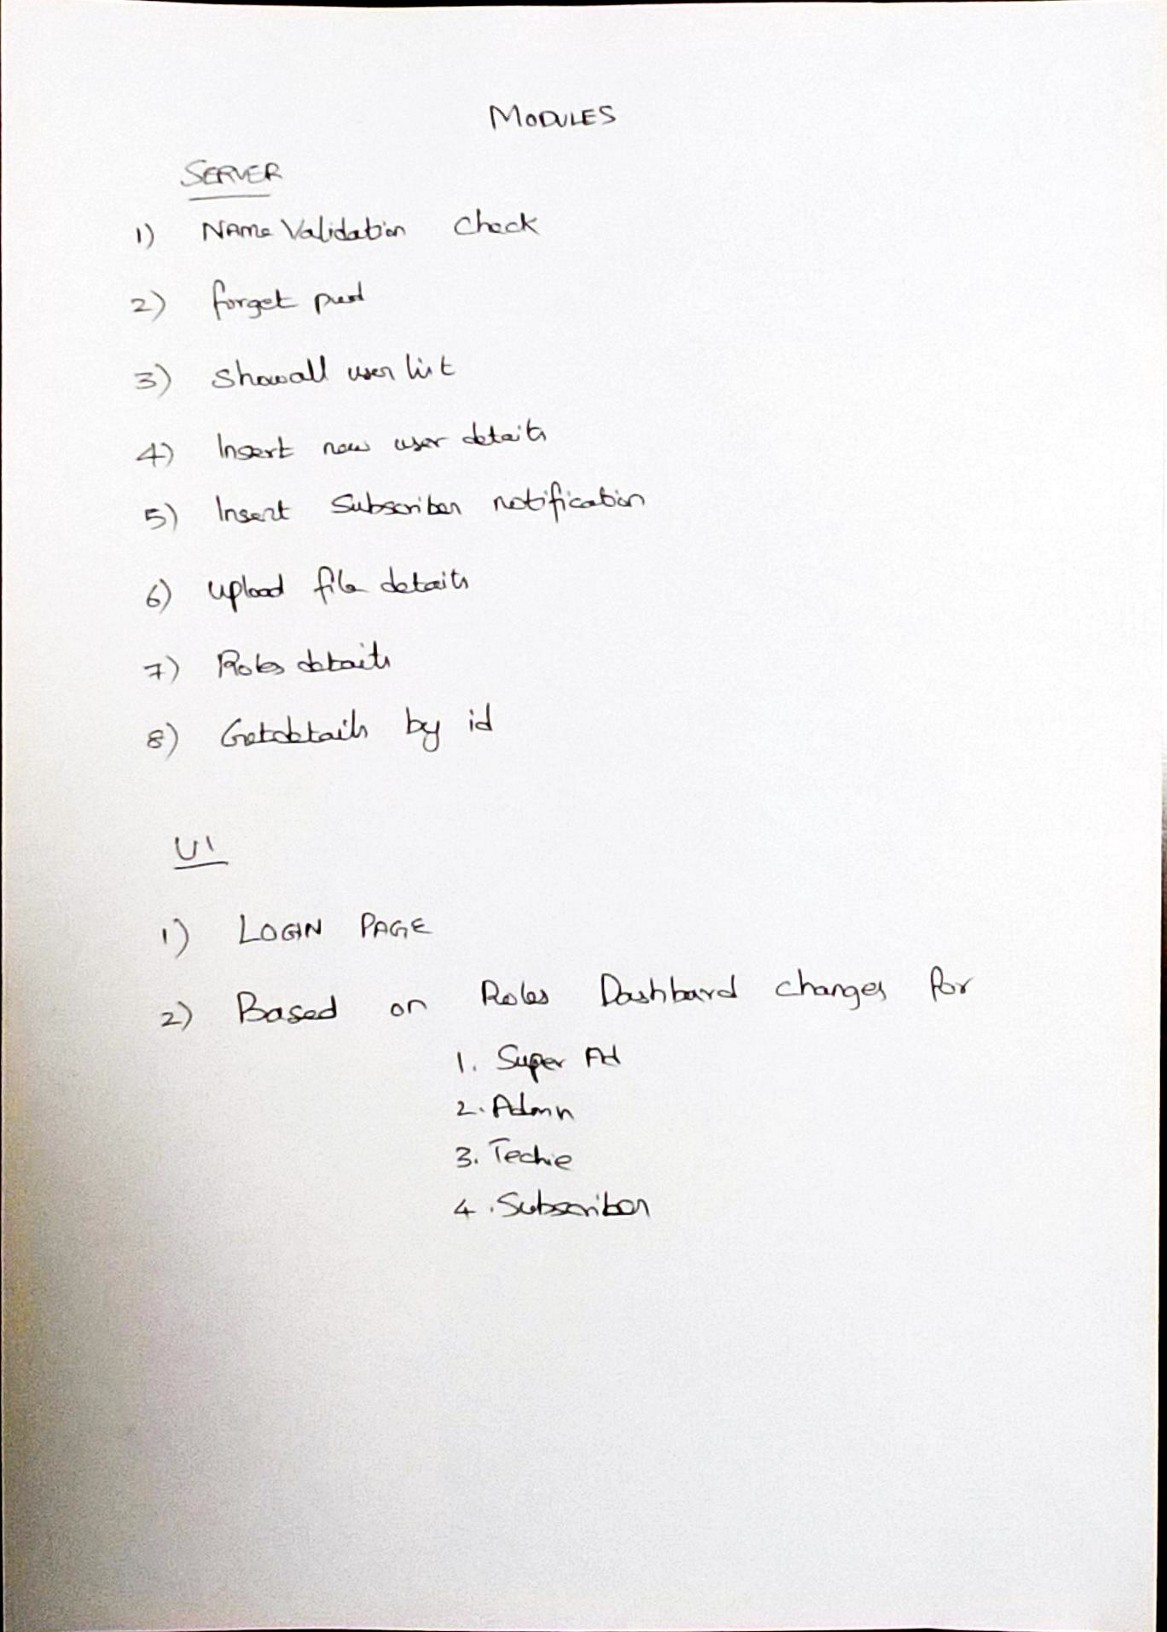 MODULES
SERVER
1) NAMe Validation Check
2) forget pwd
3) Showall user list
4) Insert new user details
5) Insert Subscriber notification
6) upload file details
7) Roles details
8) Getdetails by id
UI
1) LOGIN PAGE
2) Based on Roles Dashboard changes for
1. Super Ad
2. Admn
3. Techie
4. Subscriber